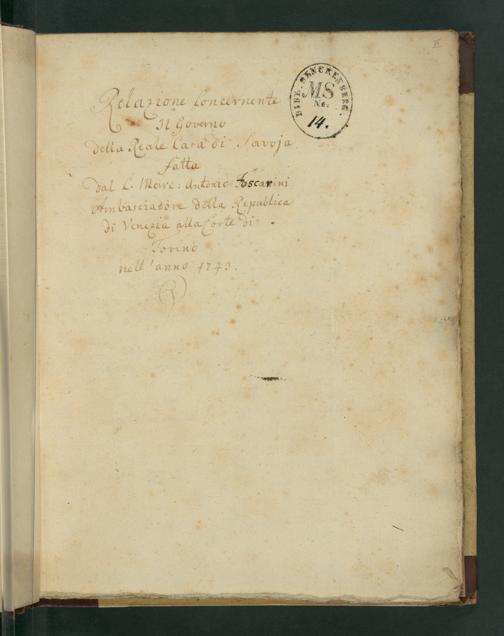 II
BIBL. SENCKENBERG.
MS
No.
14.
Relazione Concernente
Il Governo
della Reale Casa di Savoja
fatta
dal C. Marc: Antonio Foscarini
Ambasciatore della Republica
di Venezia alla Corte di
Torino
nell' anno 1743.